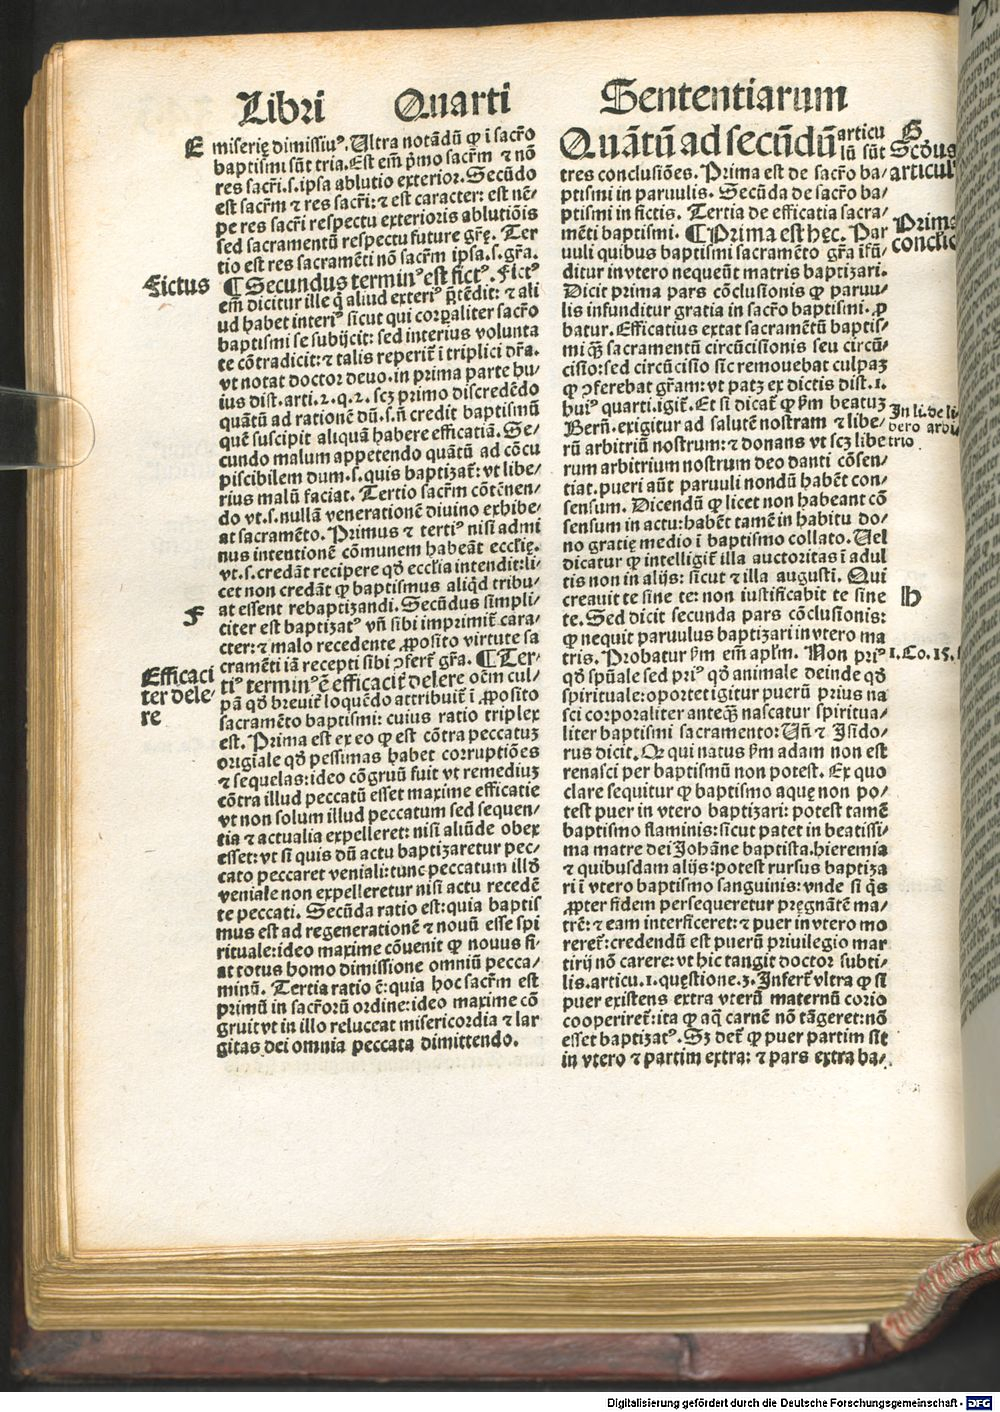 Libri Quarti Sententiarum
E
miserię dimissiuꝰ. Ultra notādū ꝙ ī sacro
baptismi sūt tria. Est em̄ pͥmo sacr̄m ⁊ nō
res sacri.s.ipsa ablutio exterior. Secūdo
est sacr̄m ⁊ res sacri:⁊ est caracter: est nē⸗
pe res sacri respectu exterioris ablutiōis
sed sacramentū respectu future gr̄ę. Ter
tio est res sacramēti nō sacr̄m ipsa.s.gr̄a.
Fictus
¶ Secundus terminꝰ est fictꝰ. Fictꝰ
em̄ dicitur ille q̄ aliud exteriꝰ p̄tēdit: ⁊ ali
ud habet interiꝰ sicut qui corꝑaliter sacro
baptismi se subijcit: sed interius volunta
te cōtradicit:⁊ talis reperit̄ i triplici dr̄a.
vt notat doctor deuo.in prima parte hu⸗
ius dist.arti.2.q.2.scꝫ primo discredēdo
quātū ad rationē dū.s.n̄ credit baptismū
quē suscipit aliquā habere efficatiā. Se⸗
cundo malum appetendo quātū ad cōcu
piscibilem dum.s.quis baptizat̄: vt libe⸗
rius malū faciat. Tertio sacr̄m cōtēnen⸗
do vt.s.nullā venerationē diuino exhibe⸗
at sacramēto. Primus ⁊ tertiꝰ nisi admi
nus intentionē cōmunem habeāt eccl̄ię.
vt.s.credāt recipere qd̄ eccl̄ia intendit:li⸗
cet non credāt ꝙ baptismus aliqd̄ tribu⸗
F
at essent rebaptizandi. Secūdus simpli⸗
citer est baptizatꝰ vn̄ sibi imprimit̄ cara⸗
cter:⁊ malo recedente ꝓposito virtute sa
cramēti iā recepti sibi ↄfert̄ gr̄a. ¶ Ter⸗
Efficaci
ter dele⸗
re
tiꝰ terminꝰ ē efficacit̄ delere oēm cul⸗
pā qd̄ breuit̄ loquēdo attribuit̄ ī ꝓposito
sacramēto baptismi: cuius ratio triplex
est. Prima est ex eo ꝙ est cōtra peccatuꝫ
origīale qd̄ pessimas habet corruptiōes
⁊ sequelas:ideo cōgruū fuit vt remediuꝫ
cōtra illud peccatū esset maxime efficatie
vt non solum illud peccatum sed sequen⸗
tia ⁊ actualia expelleret: nisi aliūde obex
esset: vt si quis dū actu baptizaretur pec⸗
cato peccaret veniali:tunc peccatum illd̄
veniale non expelleretur nisi actu recedē
te peccati. Secūda ratio est:quia baptis
mus est ad regenerationē ⁊ nouū esse spi
rituale:ideo maxime cōuenit ꝙ nouus fi⸗
at totus homo dimissione omniū pecca⸗
minū. Tertia ratio ē:quia hoc sacr̄m est
primū in sacrorū ordine:ideo maxime cō
gruit vt in illo reluceat misericordia ⁊ lar
gitas dei omnia peccata dimittendo.
Quātū ad secūdū articu
lū sūt
G
Scd̄us
articul
tres conclusiōes. Prima est de sacro ba⸗
ptismi in paruulis. Secūda de sacro ba⸗
ptismi in fictis. Tertia de efficatia sacra⸗
mēti baptismi. ¶ Prima est hęc. Par
Prima
conclu
uuli quibus baptismi sacramēto gr̄a ifū⸗
ditur in vtero nequeūt matris baptizari.
Dicit prima pars cōclusionis ꝙ paruu⸗
lis infunditur gratia in sacro baptismi.ꝓ
batur. Efficatius extat sacramētū baptis⸗
mi q̄ꝫ sacramentū circūcisionis seu circū⸗
cisio: sed circūcisio sic remouebat culpaꝫ
ꝙ ↄferebat gr̄am: vt patꝫ ex dictis dist.1.
huiꝰ quarti.igit̄. Et si dicat̄ ꝙ ẜm beatuꝫ
In li. de li
bero arbi
trio
Bern̄.exigitur ad salutē nostram ⁊ libe⸗
rū arbitriū nostrum:⁊ donans vt scꝫ libe
rum arbitrium nostrum deo danti cōsen⸗
tiat.pueri aūt paruuli nondū habēt con⸗
sensum. Dicendū ꝙ licet non habeant cō
sensum in actu:habēt tamē in habitu do⸗
no gratię medio ī baptismo collato. Uel
dicatur ꝙ intelligit̄ illa auctoritas ī adul
tis non in alijs: sicut ⁊ illa augusti. Qui
creauit te sine te: non iustificabit te sine
H
te. Sed dicit secunda pars cōclusionis:
ꝙ nequit paruulus baptizari in vtero ma
tris. Probatur ẜm em̄ apl̄m. Non priꝰ
1.Co.15.
qd̄ spūale sed priꝰ qd̄ animale deinde qd̄
spirituale:oportet igitur puerū prius na
sci corporaliter anteq̄ꝫ nascatur spiritua⸗
liter baptismi sacramento: Un̄ ⁊ Isido⸗
rus dicit. Qr qui natus ẜm adam non est
renasci per baptismū non potest. Ex quo
clare sequitur ꝙ baptismo aquę non po⸗
test puer in vtero baptizari: potest tamē
baptismo flaminis: sicut patet in beatissi⸗
ma matre dei Johāne baptista.hieremia
⁊ quibusdam alijs:potest rursus baptiza
ri ī vtero baptismo sanguinis: vnde si q̄s
ꝓpter fidem persequeretur pręgnātē ma⸗
trē:⁊ eam interficeret:⁊ puer in vtero mo
reret̄:credendū est puerū priuilegio mar
tirij nō carere: vt hic tangit doctor subti⸗
lis.articu.1.quęstione.3. Infert̄ vltra ꝙ si
puer existens extra vterū maternū corio
cooperiret̄:ita ꝙ aq̄ carnē nō tāgeret:nō
esset baptizatꝰ. Sꝫ det̄ ꝙ puer partim sit
in vtero ⁊ partim extra: ⁊ pars extra ba⸗
Digitalisierung gefördert durch die Deutsche Forschungsgemeinschaft - DFG